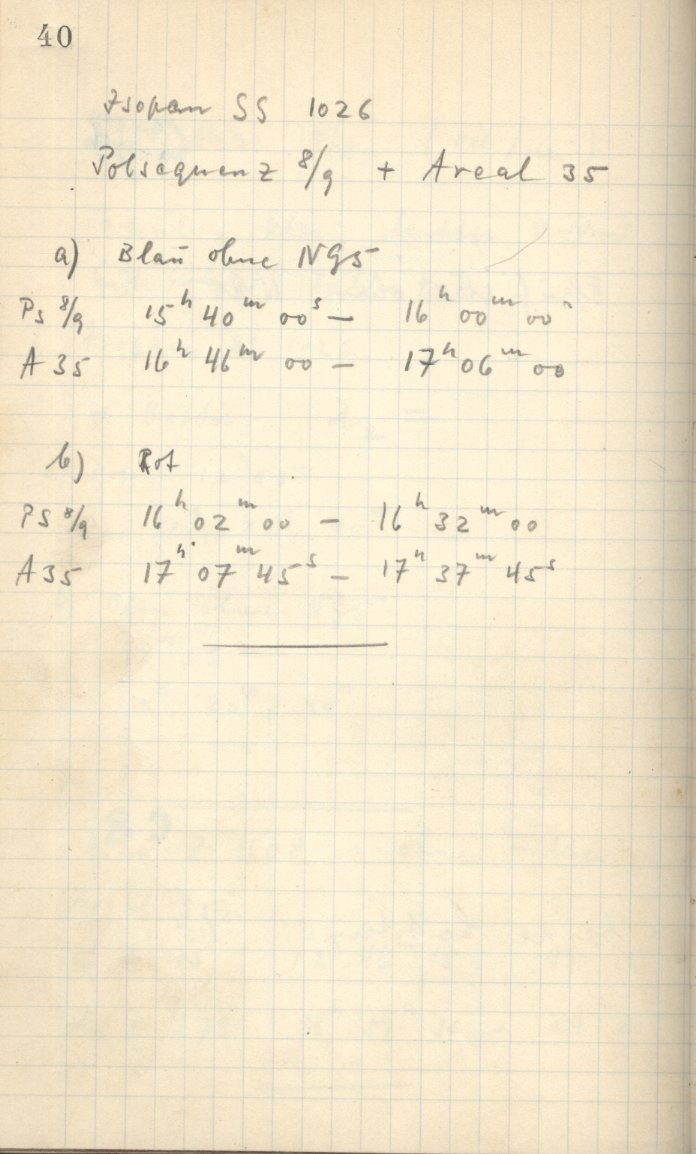 40
Isopan SS 1026
Polsequenz 8/9 + Areal 35
a) Blau ohne NG5
Ps 8/9 15ʰ 40ᵐ 00ˢ – 16ʰ 00ᵐ 00ˢ
A 35 16ʰ 46ᵐ 00 – 17ʰ 06ᵐ 00
b) Rot
PS 8/9 16ʰ 02ᵐ 00 – 16ʰ 32ᵐ 00
A 35 17ʰ 07ᵐ 45ˢ – 17ʰ 37ᵐ 45ˢ